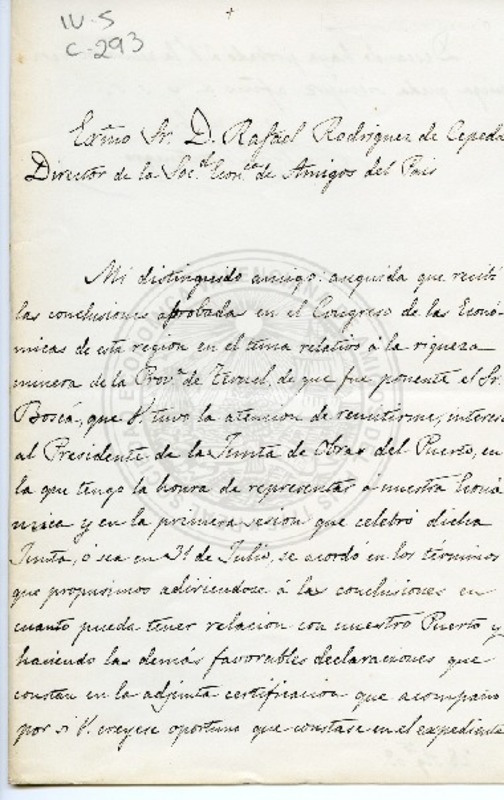 IV-5
C-293
Exmo Sr. D. Rafael Rodriguez de Cepeda
Director de la Soc.d Econ.ca de Amigos del Pais
Mi distinguido amigo: enseguida que recibí
las conclusiones aprobadas en el Congreso de las Econó-
micas de esta region en el tema relativo á la riqueza
minera de la Prov.a de Teruel, de que fue ponente el Sr.
Boscá, que V. tuvo la atencion de remitirme, interesé
al Presidente de la Junta de Obras del Puerto, en
la que tengo la honra de representar á nuestra Econó-
mica y en la primera sesion que celebró dicha
Junta, ó sea en 31 de Julio, se acordó en los términos
que propusimos adiriendose á las conclusiones en
cuanto pueda tener relacion con nuestro Puerto y
haciendo las demás favorables declaraciones que
constan en la adjunta certificacion que acompaño
por si V. creyese oportuno que constase en el expediente